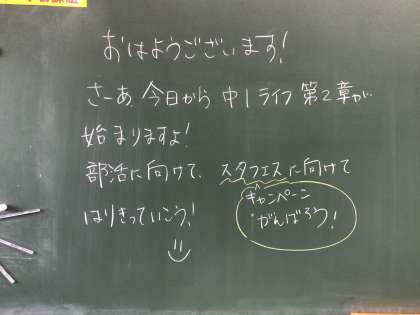 おはようございます!
さーあ、今日から中1ライフ第2章が
始まりますよ!
部活に向けて、スタフェスに向けて
はりきっていこう!
キャンペーン
がんばろう!